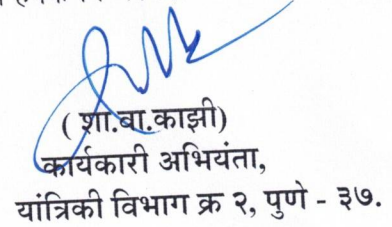 ( शा.बा.काझी)
कार्यकारी अभियंता,
यांत्रिकी विभाग क्र २, पुणे - ३७.